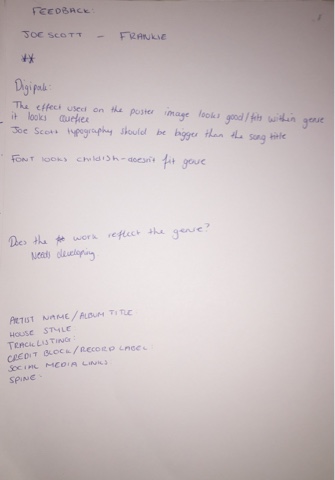 FEEDBACK:
JOE SCOTT - FRANKIE
**
Digipak:
The effect used on the poster image looks good/fits within genre
it looks
Joe Scott typography should be bigger than the song title
FONT looks childish - doesn't fit genre
Does the work reflect the genre?
Needs developing
ARTIST NAME/ALBUM TITLE:
HOUSE STYLE
TRACKLISTING:
CREDIT BLOCK/RECORD LABEL:
SOCIAL MEDIA LINKS
SPINE: